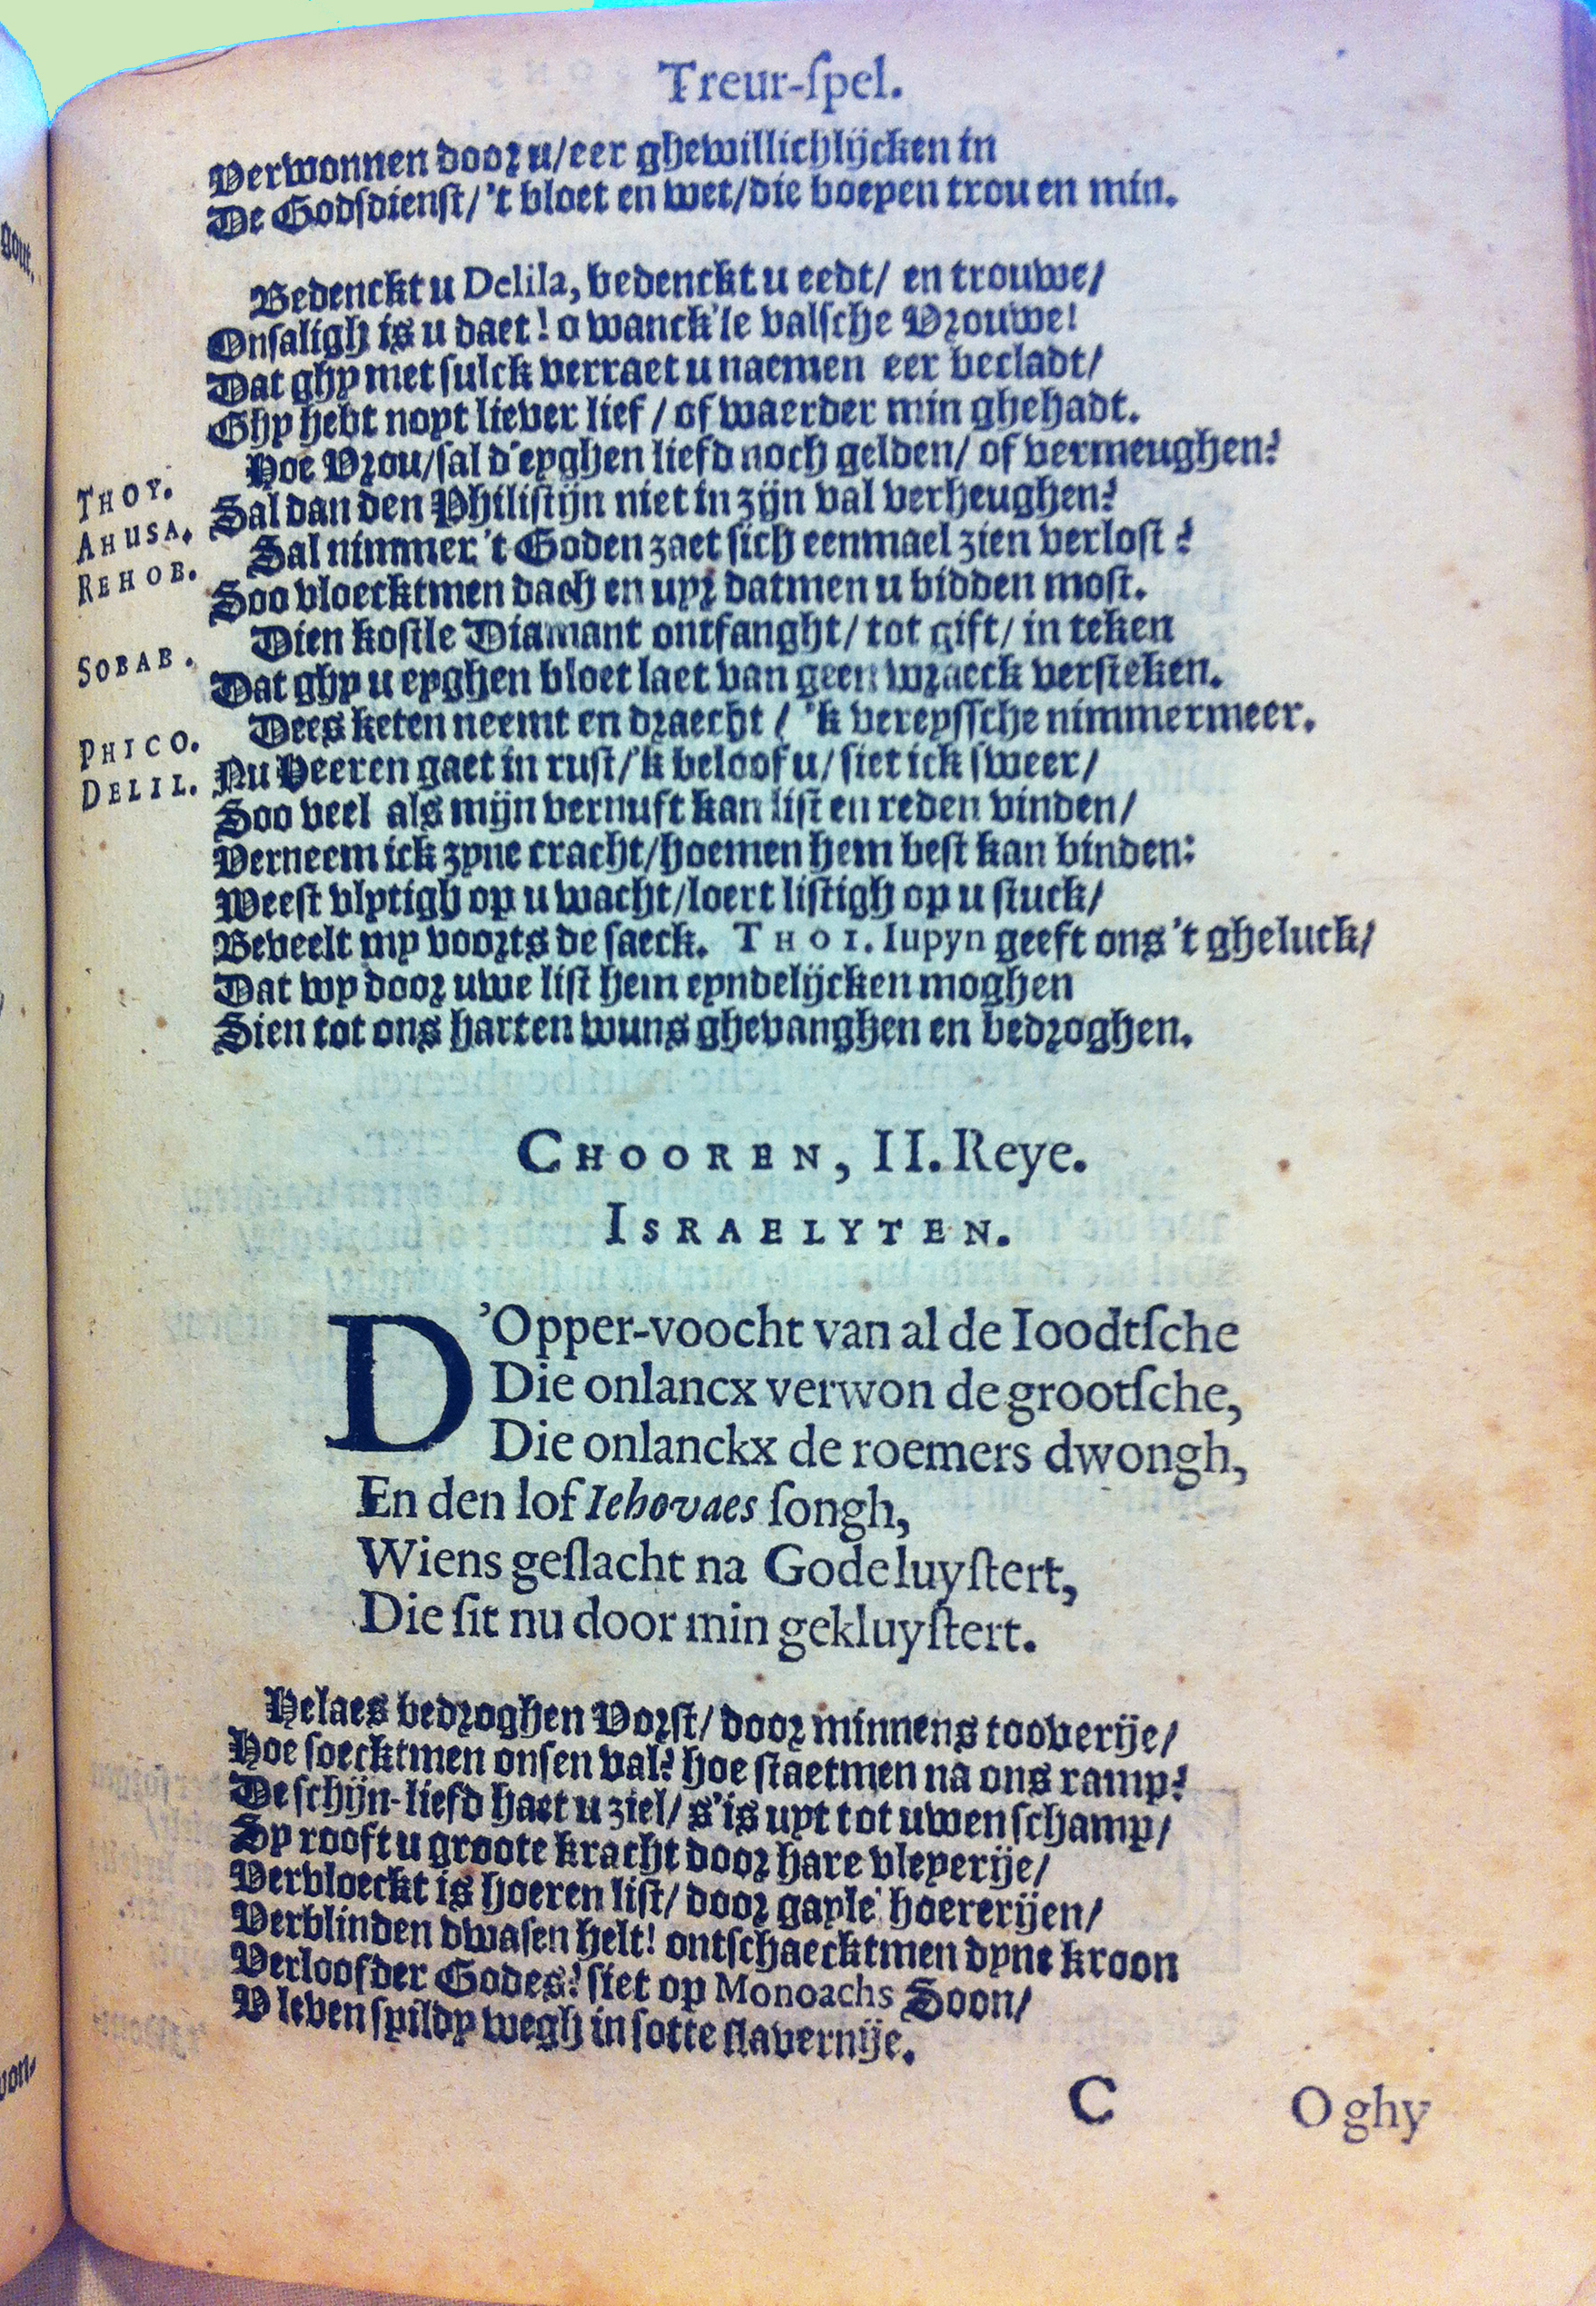 Treur-ſpel.
Verwonnen door u/eer ghewillichlijcken in
De Godſdienſt/'t bloet en wet/die boeyen trou en min.
Bedenckt u Delila, bedenckt u eedt/ en trouwe/
Onſaligh is u daet! o wanck'le valſche Vrouwe!
Dat ghy met ſulck verraet u naemen eer becladt/
Ghy hebt noyt liever lief / of waerder min ghehadt.
THOY. Hoe Vrou/ſal d'eyghen liefd noch gelden/ of vermeughen?
AHUSA. Sal dan den Philiſtijn niet in zijn val verheughen?
REHOB. Sal nimmer 't Goden zaet ſich eenmael zien verloſt?
Soo vloecktmen dach en uyr datmen u bidden moſt.
SOBAB. Dien koſtle Diamant ontfanght/ tot gift/ in teken
Dat ghy u eyghen bloet laet van geen wraeck verſteken.
PHICO. Dees keten neemt en draecht / 'k vereyſſche nimmermeer.
DELIL. Nu Heeren gaet in ruſt/'k beloof u/ ſiet ick ſweer/
Soo veel als mijn vernuft kan liſt en reden vinden/
Verneem ick zyne cracht/hoemen hem beſt kan binden:
Weeſt vlytigh op u wacht/loert liſtigh op u ſtuck/
Beveelt my voorts de ſaeck. THOI. Iupyn geeft ons 't gheluck/
Dat wy door uwe liſt hem eyndelijcken moghen
Sien tot ons harten wuns ghevanghen en bedroghen.
CHOOREN, II. Reye.
ISRAELYTEN.
D'Opper-voocht van al de Ioodtſche
Die onlancx verwon de grootſche,
Die onlanckx de roemers dwongh,
En den lof Iehovaes ſongh,
Wiens geſlacht na Gode luyſtert,
Die ſit nu door min gekluyſtert.
Helaes bedroghen Vorſt/ door minnens tooverije/
Hoe ſoecktmen onſen val? hoe ſtaetmen na ons ramp?
De ſchijn-liefd haet u ziel/ s'is uyt tot uwen ſchamp/
Sy rooft u groote kracht door hare vleyerije/
Vervloeckt is hoeren liſt/ door gayle hoererijen/
Verblinden dwaſen helt! ontſchaecktmen dyne kroon
Verloofder Godes? ſiet op Monoachs Soon/
V leven ſpildy wegh in ſotte ſlavernije.
C O ghy